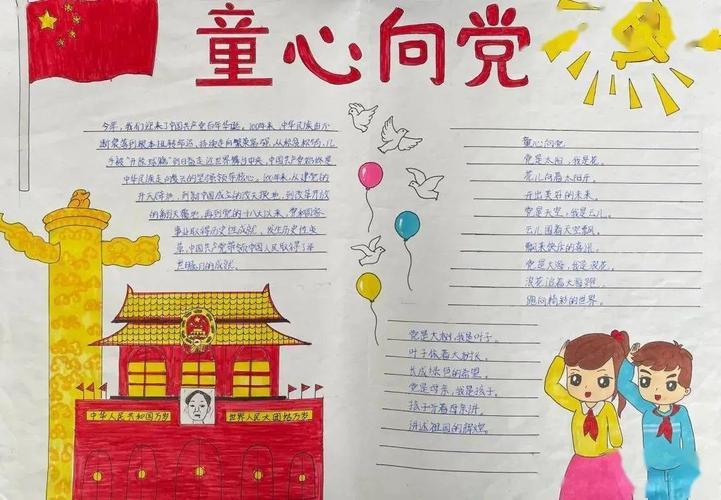 童心向党
今年，我们迎来了中国共产党百年华诞，100年来，中华民族由不
断衰落到根本扭转命运，持续走向繁荣富强，从积贫积弱，几
乎被"开除球籍"到日益走近世界舞台中央，中国共产党始终是
中华民族走向复兴的坚强领导核心。100年来，从建党的
开天辟地，到新中国成立的改天换地，到改革开放
的翻天覆地，再到党的十八大以来，党和国家
事业取得历史性成就，发生历史性变
革，中国共产党带领中国人民取得了举
世瞩目的成就。
中华人民共和国万岁
世界人民大团结万岁
童心向党
党是太阳，我是花。
花儿向着太阳开。
开出美好的未来。
党是天空，我是云儿。
云儿围着天空飘。
飘来快庆的喜讯。
党是大海，我是浪花。
浪花追着大海跑
跑向精彩的世界。
党是大树，我是叶子。
叶子依着大树长。
长成绿色的希望。
党是母亲，我是孩子。
孩子听着母亲讲。
讲述祖国的辉煌。